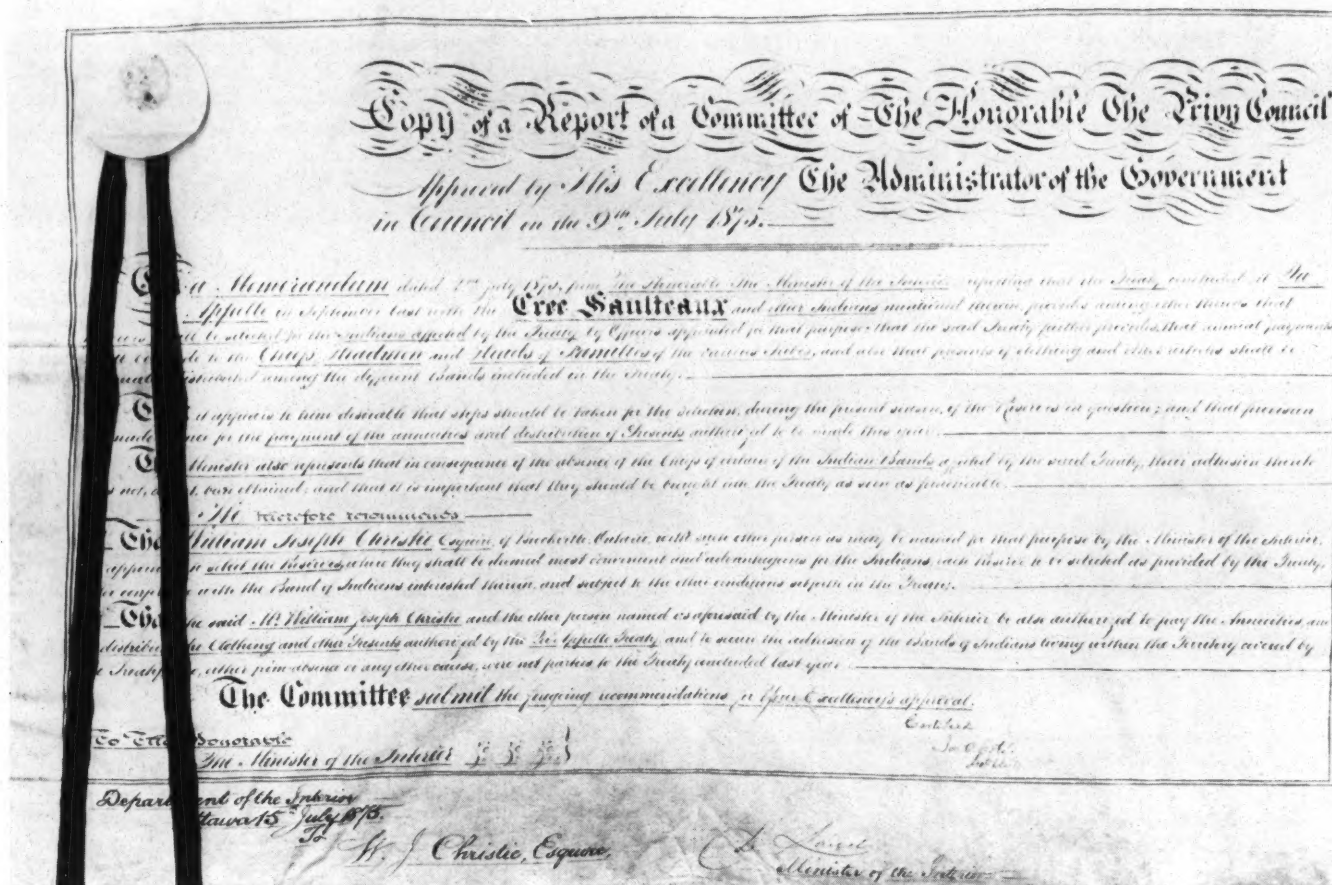 Copy of a Report of a Committee of The Honorable The Privy Council
Approved by His Excellency The Administrator of the Government
in Council on the 9th July 1875.
a Memorandum dated 2nd July 1875, from The Honorable The Minister of the Interior, reporting that the Treaty concluded at Qu'
Appelle in September last with the Cree Saulteaux and other Indians mentioned therein, provides among other things that
be selected for the Indians affected by the Treaty by Officers appointed for that purpose; that the said Treaty further provides, that annual payments
to the Chiefs, Headmen and Heads of Families of the various Tribes, and also that presents of clothing and other articles shall be
distributed among the different Bands included in the Treaty.
it appears to him desirable that steps should be taken for the selection, during the present season, of the Reserves in question; and that provision
made for the payment of the annuities and distribution of Presents authorized to be made this year.
Minister also represents that in consequence of the absence of the Chiefs of certain of the Indian Bands affected by the said Treaty, their adhesion thereto
not, been obtained; and that it is important that they should be brought into the Treaty as soon as practicable.
He therefore recommends
William Joseph Christie Esquire, of Brockville Ontario, with such other person as may be named for that purpose by the Minister of the Interior,
select the Reserves, where they shall be deemed most convenient and advantageous for the Indians, each Reserve to be selected as provided by the Treaty,
with the Band of Indians interested therein, and subject to the other conditions set forth in the Treaty.
said Mr. William Joseph Christie and the other person named as aforesaid by the Minister of the Interior be also authorized to pay the Annuities, and
Clothing and other Presents authorized by the Qu'Appelle Treaty and to secure the adhesion of the Bands of Indians living within the Territory covered by
either from absence or any other cause, were not parties to the Treaty concluded last year.
The Committee submit the foregoing recommendations for Your Excellency's approval.
Certified
To The Honorable
The Minister of the Interior &c &c &c
Department of the Interior
Ottawa 15 July 1875.
To
W. J. Christie, Esquire,
D. Laird
Minister of the Interior